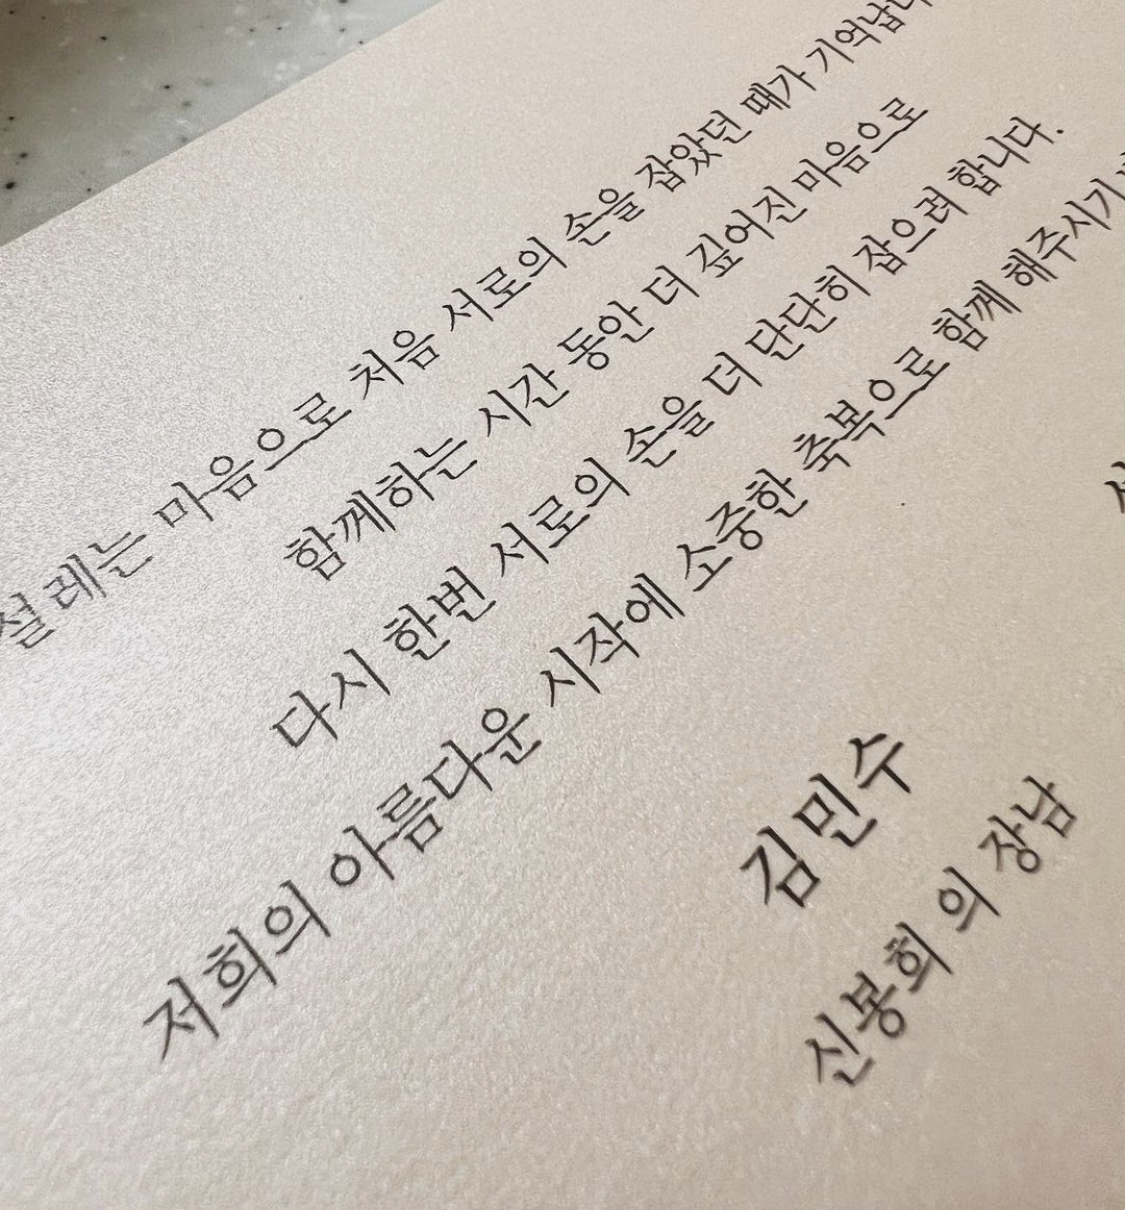 설레는 마음으로 처음 서로의 손을 잡았던 때가
함께하는 시간 동안 더 깊어진 마음으로
다시 한번 서로의 손을 더 단단히 잡으려 합니다.
저희의 아름다운 시작에 소중한 축복으로 함께 해주시기
김민수
신봉희 의 장남